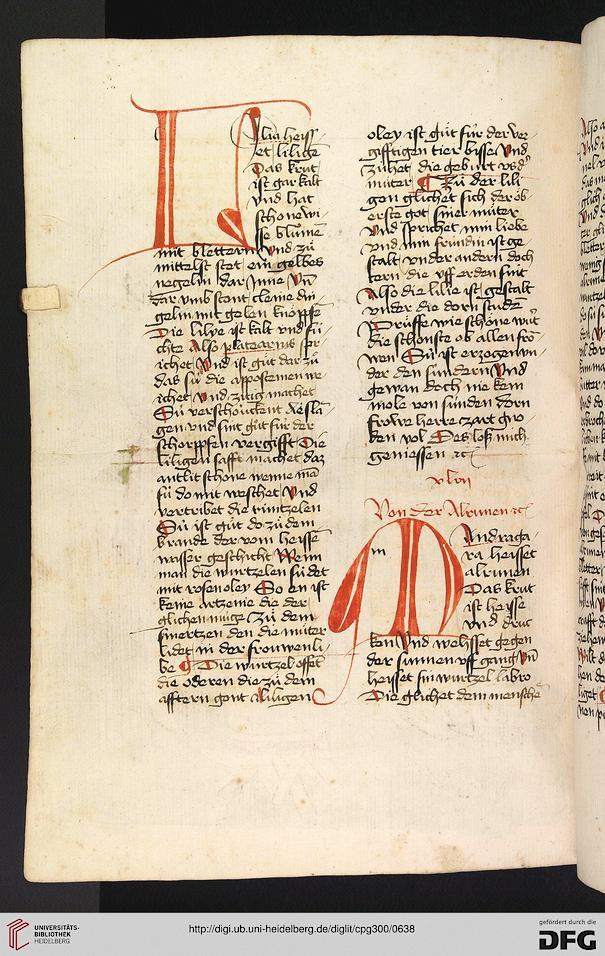 Lilia heiss-
et liligē
Das krut
ist gar kalt
vnd hat
schone wi-
sse blumē
mit blettern Vnd zů
mittelst stet ein gelbes
negelin dar Inne Vn̄
dar vmb stont cleine din
gelin mit gelen knöpffē
Die lilye ist kalt vnd fü-
chte Also platearius spr-
ichet Vnd ist gůt dar zů
das sü die appostemen we-
ichet Vnd zitig machet
Sü verschouckent
gen vnd sint gůt für der
schorppfen vergifft Die
liligen safft machet daz
antlit schöne wenne mā
sü do mit weschet Vnd
vertribet die runtzelen
Sü ist gůt do zů dem
brande der vom heissē
wasser geschicht Wenn
man die wurtzelen südet
mit rosen oley So en ist
keine artzenie die der
glichen müge Zů dem
smertzen den die můter
lidet in der frouwen li-
be Die wurtzel offēt
die oderen die zů dem
afftern gont liligen
oley ist gůt für der ver-
gifftigen tier bisse Vnd
zühet die geburt vsd'
můter Zů der lili-
gen glichet sich der ob-
erste got siner můter
Vnd sprichet min liebe
vnd min fründin ist ge
stalt vnder andern doch
tern die vff erden sint
Also die lilie ist gestalt
vnder die dorn studē
Prüffe wie schöne wir
die schonste ob allen fro-
wen Sü ist erzogen vn-
der den sündern Vnd
gewan doch nie kein
mole von sünden dorn
frowe herre zart gro-
ken vol Des loß mich
geniessen etc
xlvij
Von der Alrunen etc
m
Mandraga-
ra heisset
alrunen
Das krut
ist heisse
vnd druc
ken Vnd wehsset gegen
der sunnen vff gang Vn̄
heisset sin wurtzel labro
Die glichet dem mensche
UNIVERSITÄTS-
BIBLIOTHEK
HEIDELBERG
http://digi.ub.uni-heidelberg.de/diglit/cpg300/0638
gefördert durch die
DFG